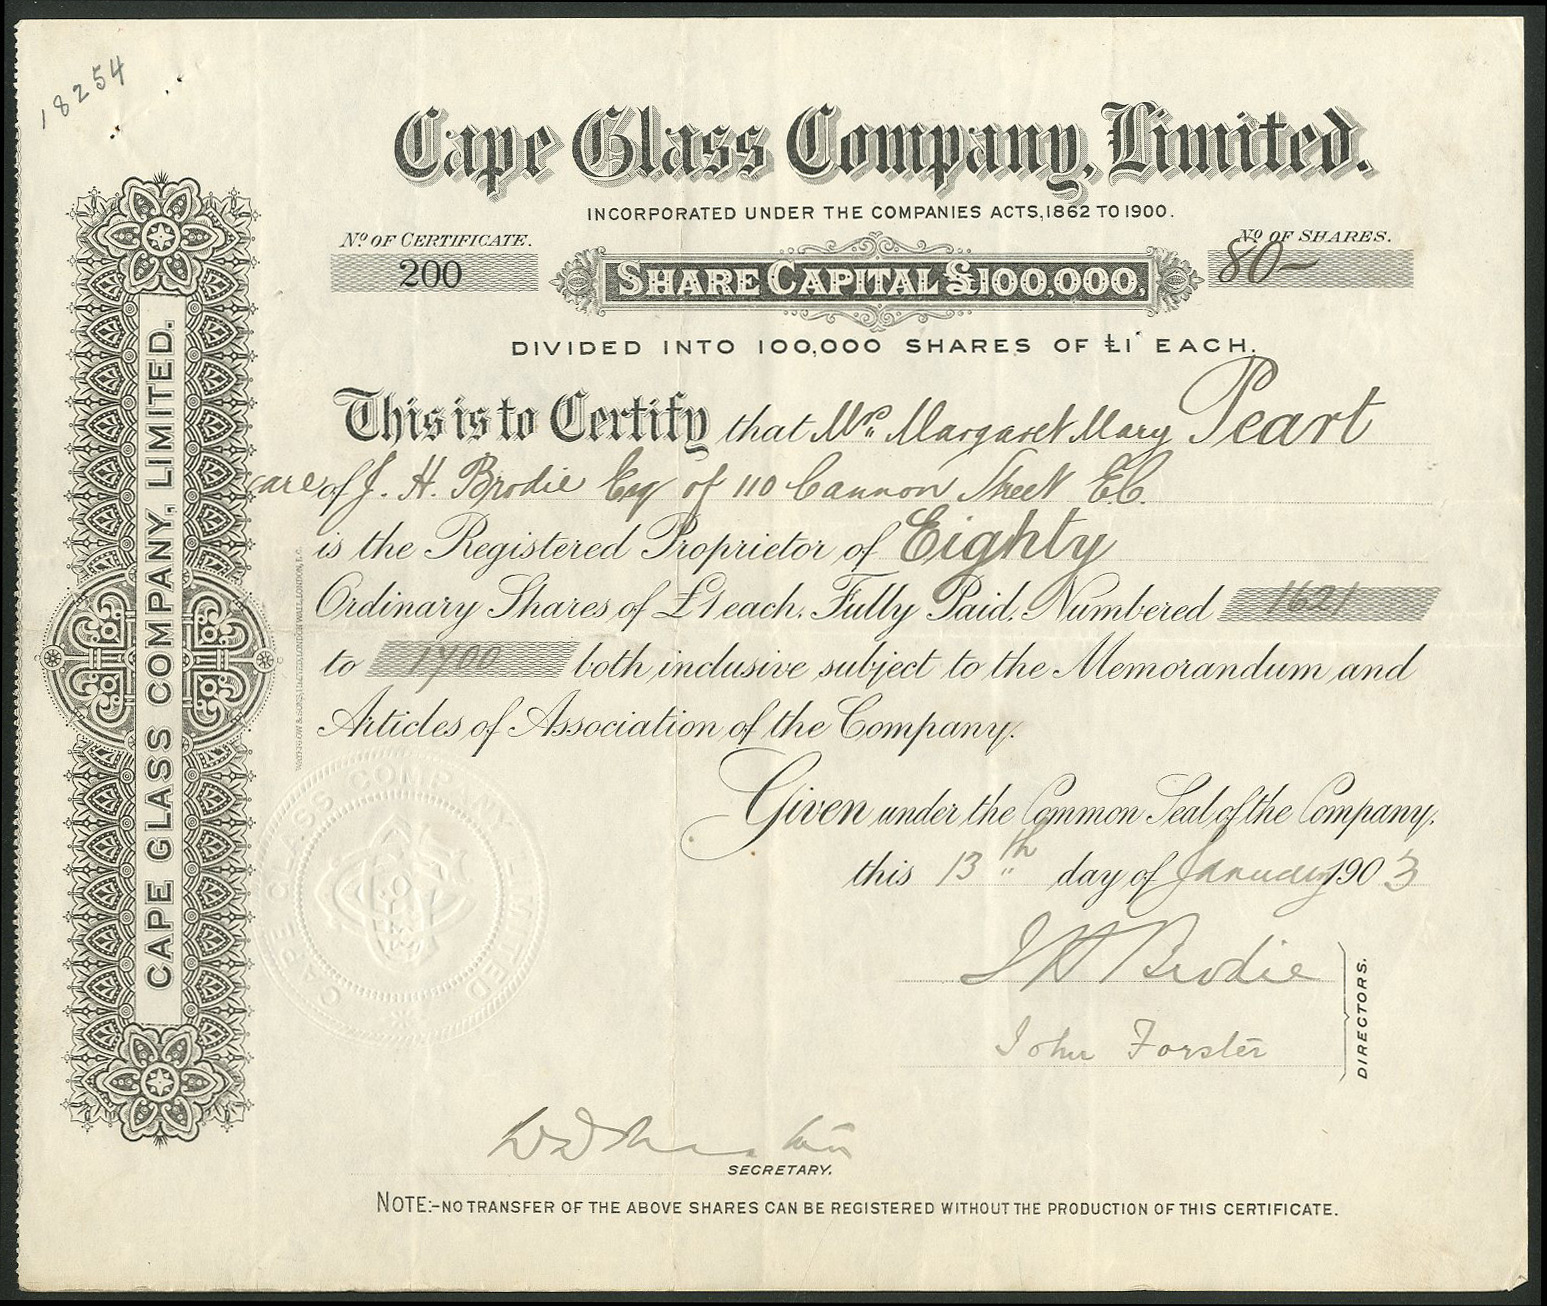 18254
Cape Glass Company, Limited.
INCORPORATED UNDER THE COMPANIES ACTS, 1862 TO 1900.
No OF CERTIFICATE.
200
SHARE CAPITAL £100,000,
No OF SHARES.
80-
DIVIDED INTO 100,000 SHARES OF £1 EACH.
This is to Certify that Mrs. Margaret Mary Peart
care of J. H. Brodie Esq of 110 Cannon Street E.C.
is the Registered Proprietor of Eighty
Ordinary Shares of £1 each. Fully Paid. Numbered 1621
to 1700 both inclusive subject to the Memorandum and
Articles of Association of the Company.
Given under the Common Seal of the Company,
this 13th day of January 1903
J H Brodie
John Forster
DIRECTORS.
SECRETARY.
NOTE:-NO TRANSFER OF THE ABOVE SHARES CAN BE REGISTERED WITHOUT THE PRODUCTION OF THIS CERTIFICATE.
CAPE GLASS COMPANY, LIMITED.
CAPE GLASS COMPANY LIMITED
& SONS, LONDON WALL, LONDON, E.C.